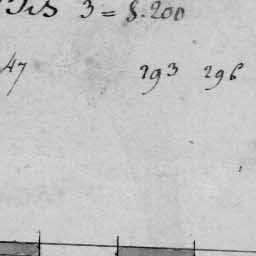 3 = 8.200
47 293 296